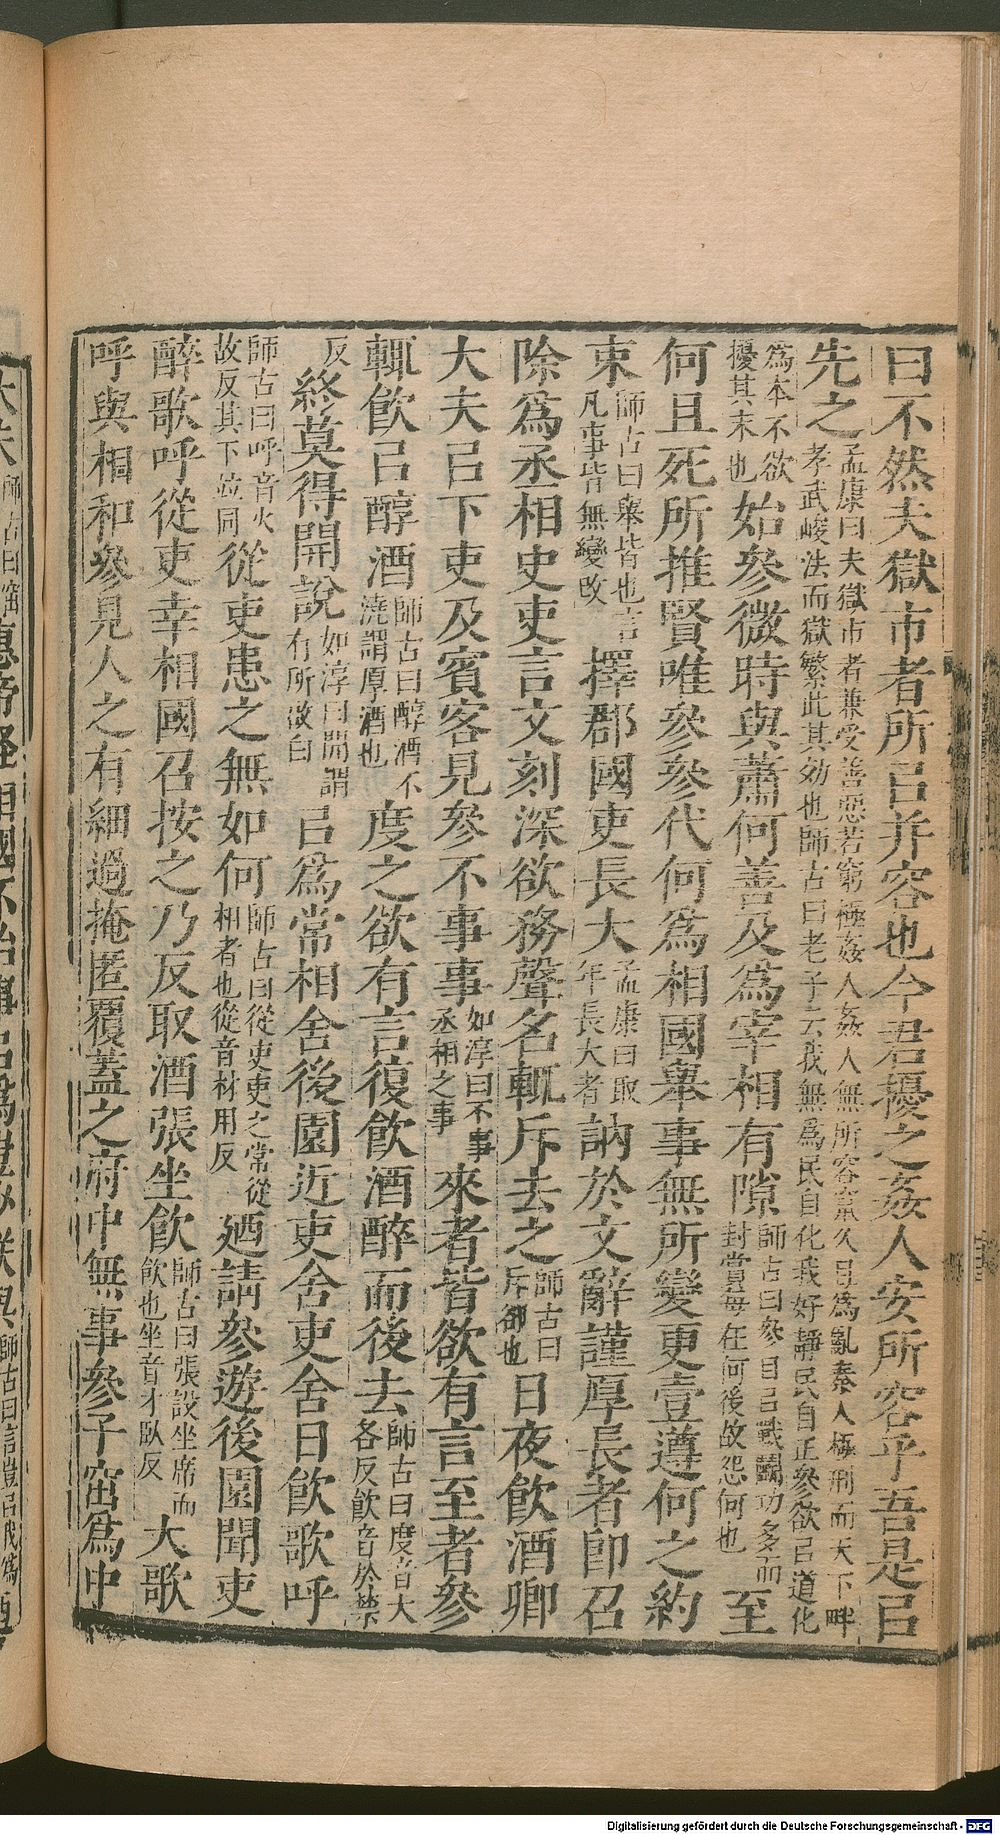 曰不然夫獄市者所㠯并容也今君擾之姦人安所容乎吾是㠯
先之孟康曰夫獄市者兼受善惡若窮極姦人姦人無所容竄久且爲亂秦人極刑而天下畔孝武峻法而獄繁此其効也師古曰老子云我無爲民自化我好靜民自正參欲㠯道化
爲本不欲擾其末也始參微時與蕭何善及爲宰相有隙師古曰參自㠯戰鬭功多而封賞每在何後故怨何也至
何且死所推賢唯參參代何爲相國舉事無所變更壹遵何之約
束師古曰舉皆也言凡事皆無變改擇郡國吏長大孟康曰取年長大者訥於文辭謹厚長者卽召
除爲丞相史吏言文刻深欲務聲名輒斥去之師古曰斥卻也日夜飮酒卿
大夫㠯下吏及賓客見參不事事如淳曰不事丞相之事來者皆欲有言至者參
輒飮㠯醇酒師古曰醇酒不澆謂厚酒也度之欲有言復飮酒醉而後去師古曰度音大各反飮音於禁
反終莫得開說如淳曰開謂有所啟白㠯爲常相舍後園近吏舍吏舍日飮歌呼
師古曰呼音火故反其下竝同從吏患之無如何師古曰從吏吏之常從相者也從音材用反廼請參遊後園聞吏
醉歌呼從吏幸相國召按之乃反取酒張坐飮師古曰張設坐席而飮也坐音才臥反大歌
呼與相和參見人之有細過掩匿覆蓋之府中無事參子窋爲中
大夫師古曰窋惠帝怪相國不治事㠯爲豈少朕與師古曰言豈㠯我爲
Digitalisierung gefördert durch die Deutsche Forschungsgemeinschaft - DFG